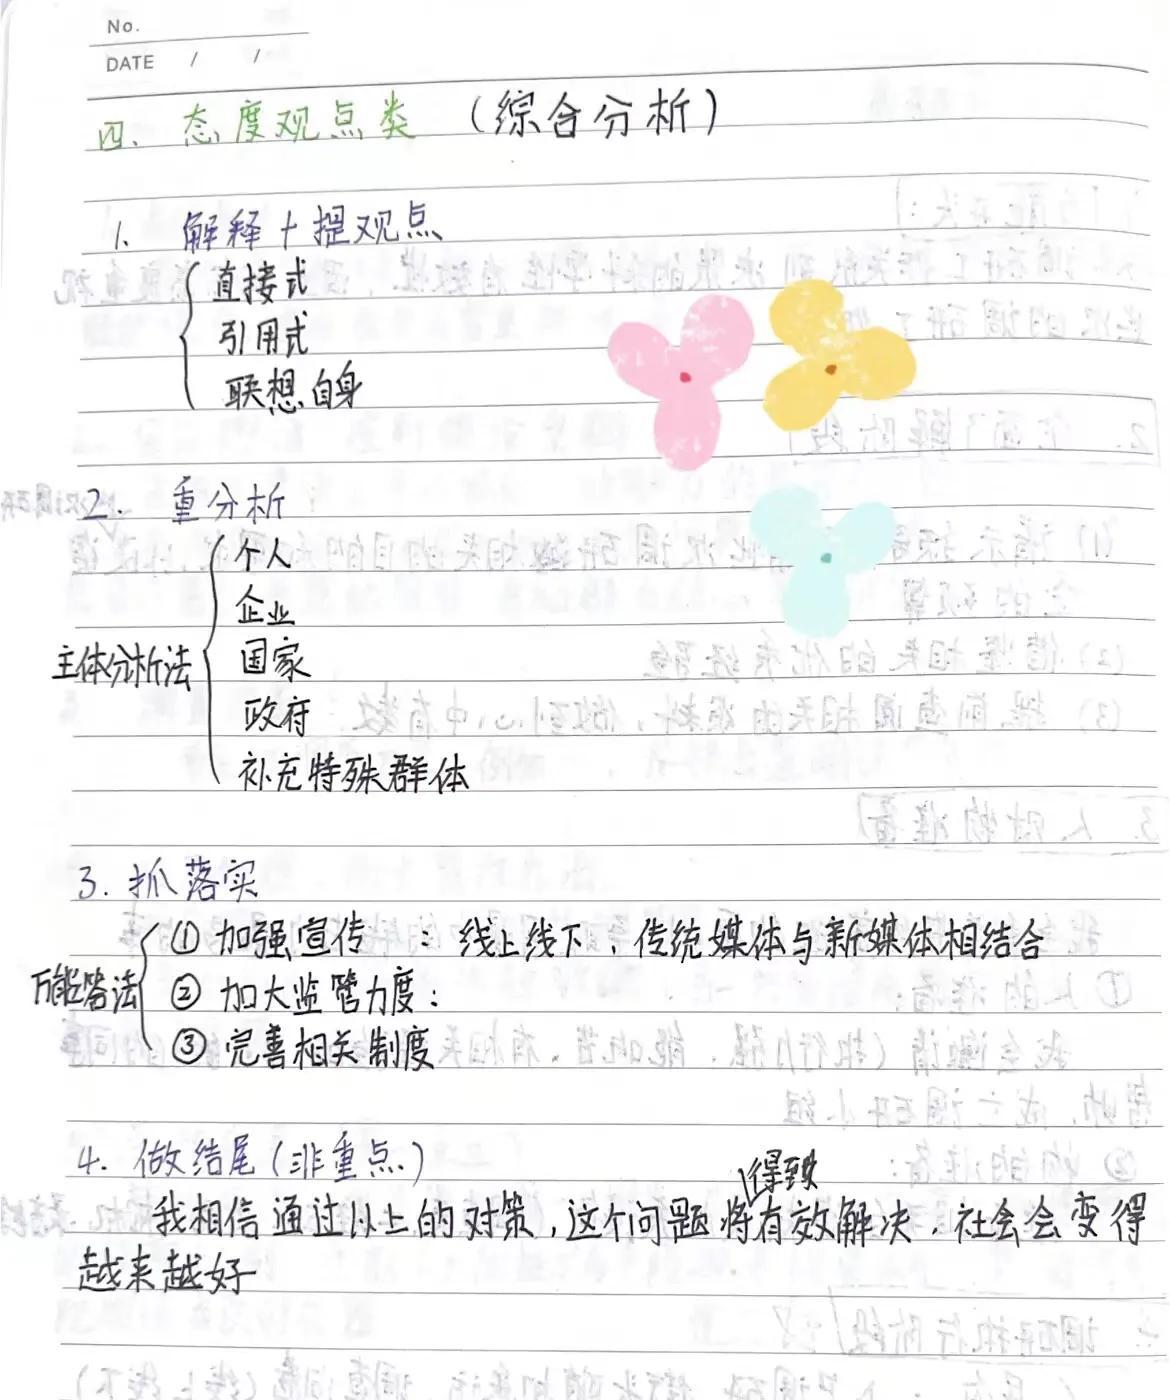 No.
DATE / /
四、态度观点类 (综合分析)
1. 解释+提观点
直接式
引用式
联想自身
2. 重分析
主体分析法
个人
企业
国家
政府
补充特殊群体
3. 抓落实
万能答法
① 加强宣传 : 线上线下, 传统媒体与新媒体相结合
② 加大监管力度:
③ 完善相关制度
4. 做结尾(非重点)
得到
我相信通过以上的对策,这个问题将有效解决,社会会变得
越来越好